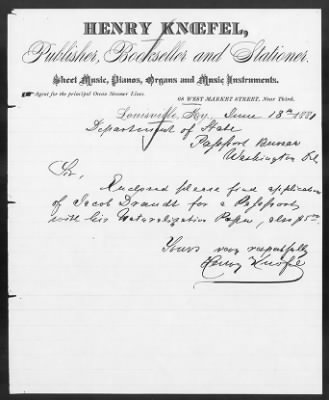 HENRY KNŒFEL,
Publisher, Bookseller and Stationer.
Sheet Music, Pianos, Organs and Music Instruments.
Agent for the principal Ocean Steamer Lines.
68 WEST MARKET STREET, Near Third.
Louisville, Ky. June 18th 1881
Department of State
Passport Bureau
Washington
Sir,
Enclosed please find application
of Jacob Brandt for a Passport
with his Naturalization Paper, also
Yours very respectfully
Henry Knöfel